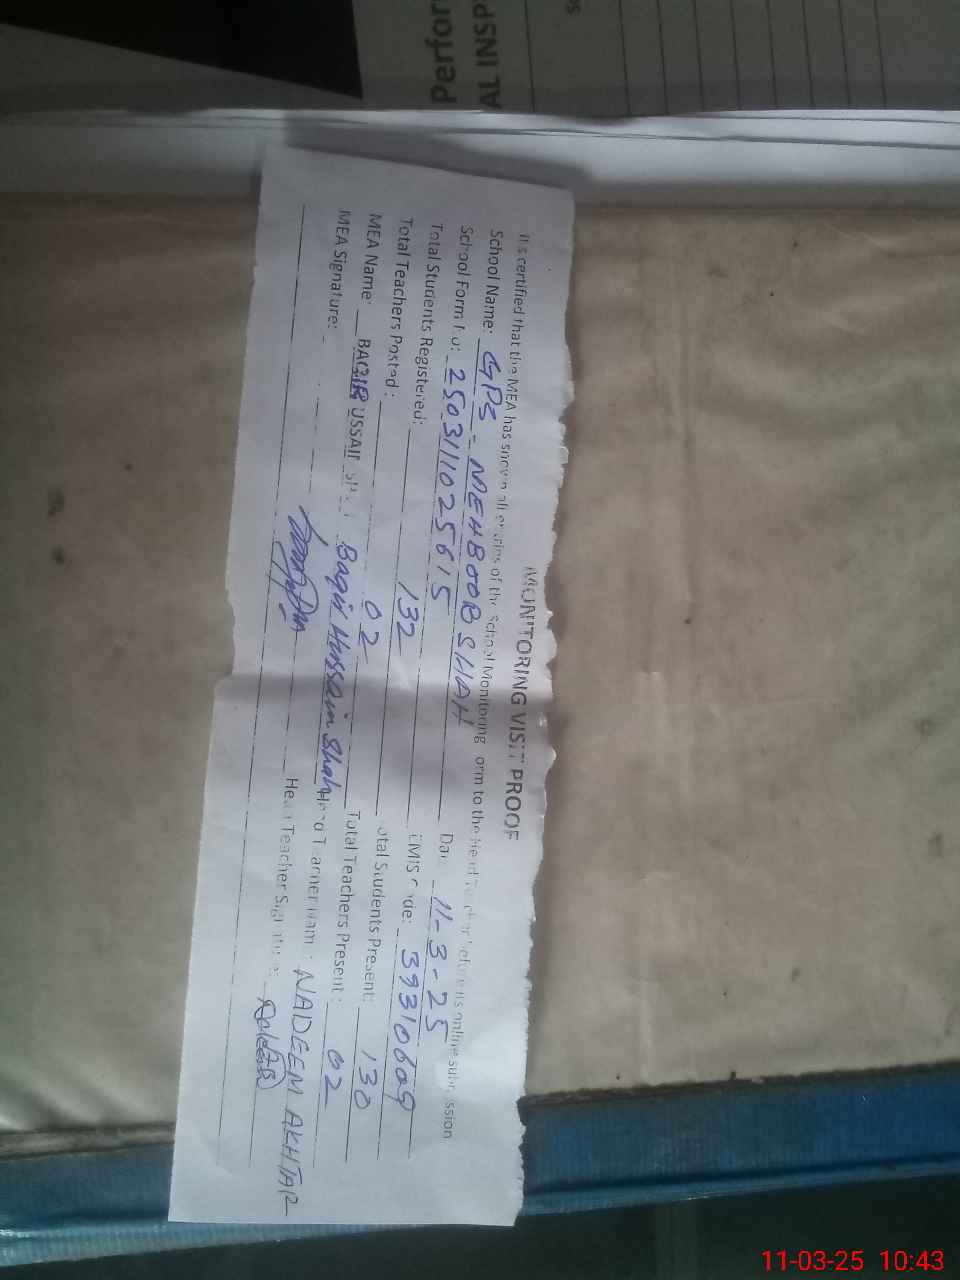 Perfor
AL INSP
MONITORING VISIT PROOF
It is certified that the MEA has shown all entries of the School Monitoring Form to the Head Teacher before its online submission
School Name: GPS - MEHBOOB SHAH Date 11-3-25
School Form No: 2503111025615 EMIS Code: 39310609
Total Students Registered: 132 Total Students Present: 130
Total Teachers Posted: 02 Total Teachers Present: 02
MEA Name: BAQIR HUSSAIN SHAH Baqir Hussain Shah Head Teacher Name: NADEEM AKHTAR
MEA Signature: Head Teacher Signature:
11-03-25 10:43